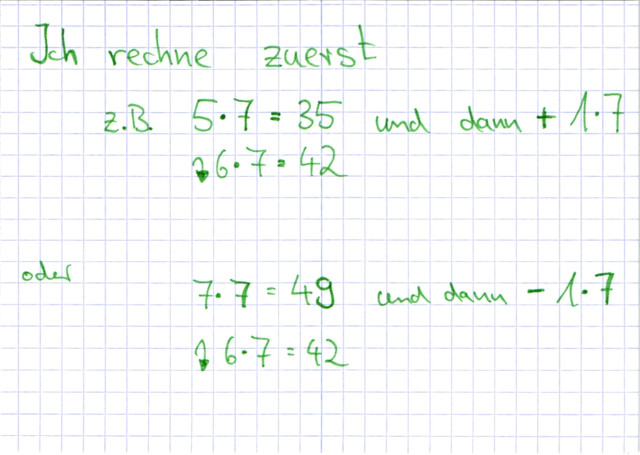 Ich rechne zuerst
z.B. 5·7 = 35 und dann + 1·7
↓ 6·7 = 42
oder 7·7 = 49 und dann - 1·7
↓ 6·7 = 42